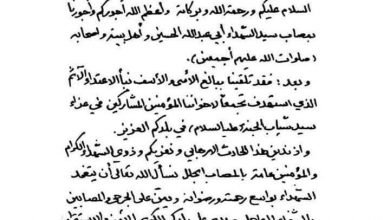 السلام عليكم ورحمة الله وبركاته وأعظم الله أجوركم وأجورنا
بمصاب سيد الشهداء أبي عبد الله الحسين وأهل بيته وأصحابه
(صلوات الله عليهم أجمعين).
وبعد: فقد تلقينا ببالغ الأسى والأسف نبأ الاعتداء الآثم
الذي استهدف تجمعاً لإخواننا المؤمنين المشاركين في عزاء
سيد شباب الجنة (عليه السلام) في بلدكم العزيز.
وإذ ندين هذا الحادث الإرهابي ونعزيكم وذوي الشهداء الكرام
والمؤمنين عامة بالمصاب الجلل نسأل الله تعالى أن يتغمد
الشهداء بواسع رحمته ورضوانه ويمن على الجرحى والمصابين